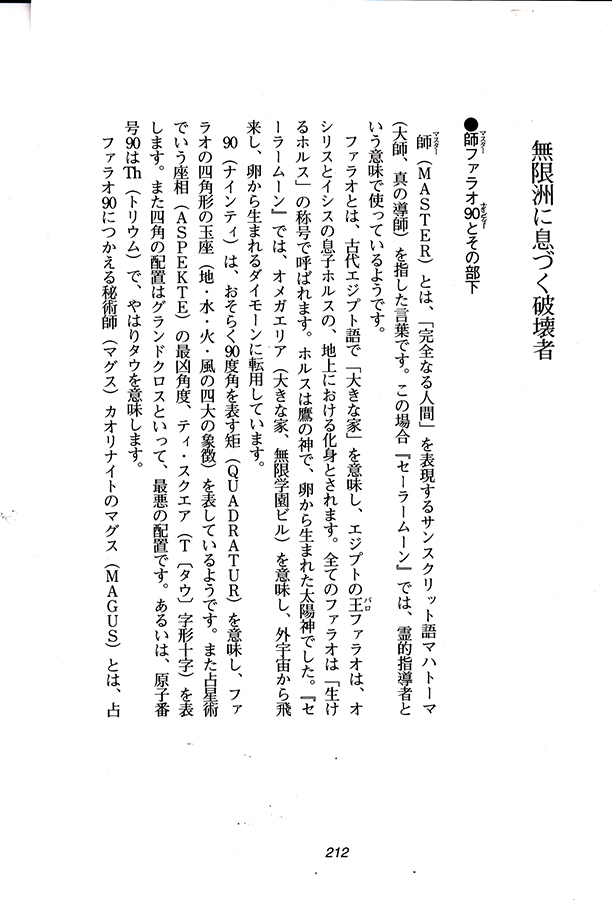 無限洲に息づく破壊者
●師ファラオ90とその部下
師（MASTER）とは、「完全なる人間」を表現するサンスクリット語マハトーマ
（大師、真の導師）を指した言葉です。この場合『セーラームーン』では、霊的指導者と
いう意味で使っているようです。
ファラオとは、古代エジプト語で「大きな家」を意味し、エジプトの王ファラオは、オ
シリスとイシスの息子ホルスの、地上における化身とされます。全てのファラオは「生け
るホルス」の称号で呼ばれます。ホルスは鷹の神で、卵から生まれた太陽神でした。『セ
ーラームーン』では、オメガエリア（大きな家、無限学園ビル）を意味し、外宇宙から飛
来し、卵から生まれるダイモーンに転用しています。
90（ナインティ）は、おそらく90度角を表す矩（QUADRATUR）を意味し、ファ
ラオの四角形の玉座（地・水・火・風の四大の象徴）を表しているようです。また占星術
でいう座相（ASPEKTE）の最凶角度、ティ・スクエア（T〔タウ〕字形十字）を表
します。また四角の配置はグランドクロスといって、最悪の配置です。あるいは、原子番
号90はTh（トリウム）で、やはりタウを意味します。
ファラオ90につかえる秘術師（マグス）カオリナイトのマグス（MAGUS）とは、占
212